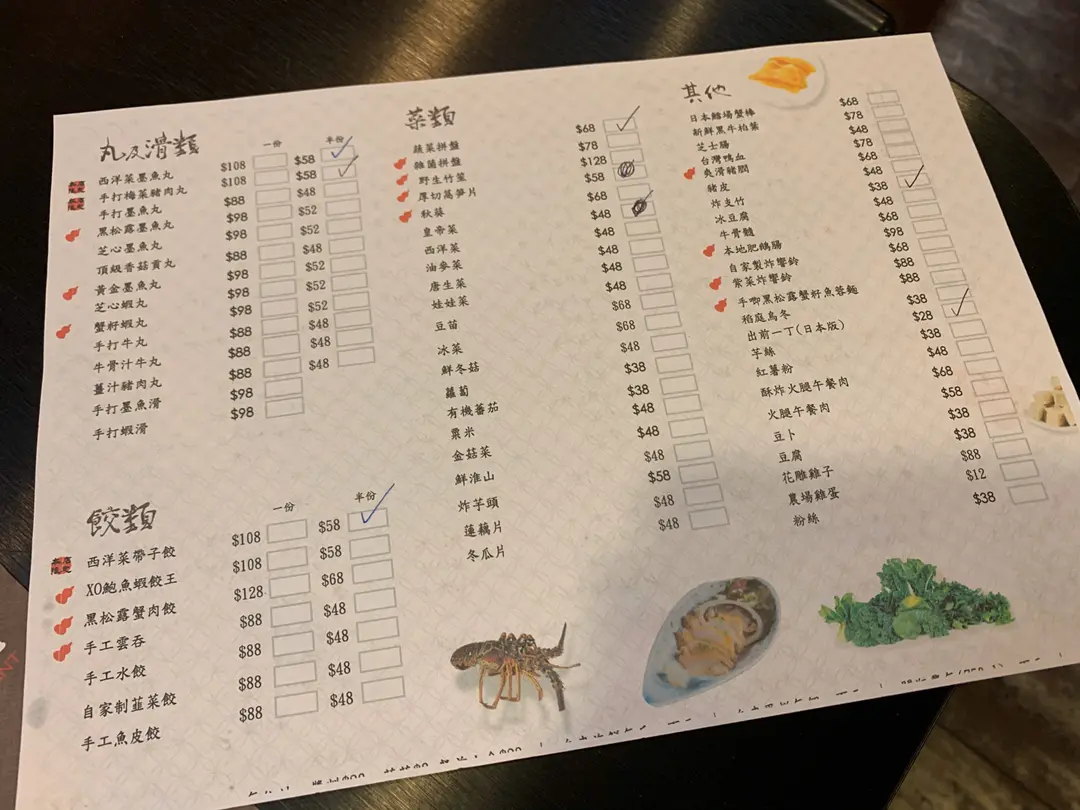 丸及滑類
一份 半份
西洋菜墨魚丸 $108 $58
手打梅菜豬肉丸 $108 $58
手打墨魚丸 $88 $48
黑松露墨魚丸 $98 $52
芝心墨魚丸 $98 $52
頂級香菇貢丸 $88 $48
黃金墨魚丸 $98 $52
芝心蝦丸 $98 $52
蟹籽蝦丸 $98 $52
手打牛丸 $88 $48
牛骨汁牛丸 $88 $48
薑汁豬肉丸 $88 $48
手打墨魚滑 $98
手打蝦滑 $98
餃類
一份 半份
西洋菜帶子餃 $108 $58
XO鮑魚蝦餃王 $108 $58
黑松露蟹肉餃 $128 $68
手工雲吞 $88 $48
手工水餃 $88 $48
自家制韮菜餃 $88 $48
手工魚皮餃 $88 $48
菜類
蔬菜拼盤 $68
雜菌拼盤 $78
野生竹笙 $128
厚切萵筍片 $58
秋葵 $68
皇帝菜 $48
西洋菜 $48
油麥菜 $48
唐生菜 $48
娃娃菜 $48
豆苗 $68
冰菜 $68
鮮冬菇 $48
蘿蔔 $38
有機蕃茄 $38
粟米 $48
金菇菜 $48
鮮淮山 $48
炸芋頭 $58
蓮藕片 $48
冬瓜片 $48
其他
日本鱈場蟹棒 $68
新鮮黑牛柏葉 $78
芝士腸 $48
台灣鴨血 $78
爽滑豬膶 $68
豬皮 $48
炸支竹 $38
冰豆腐 $48
牛骨髓 $68
本地肥鵝腸 $98
自家製炸響鈴 $68
紫菜炸響鈴 $88
手唧黑松露蟹籽魚蓉麵 $88
稻庭烏冬 $38
出前一丁(日本版) $28
芋絲 $38
紅薯粉 $48
酥炸火腿午餐肉 $68
火腿午餐肉 $58
豆卜 $38
豆腐 $38
花雕雞子 $88
農場雞蛋 $12
粉絲 $38